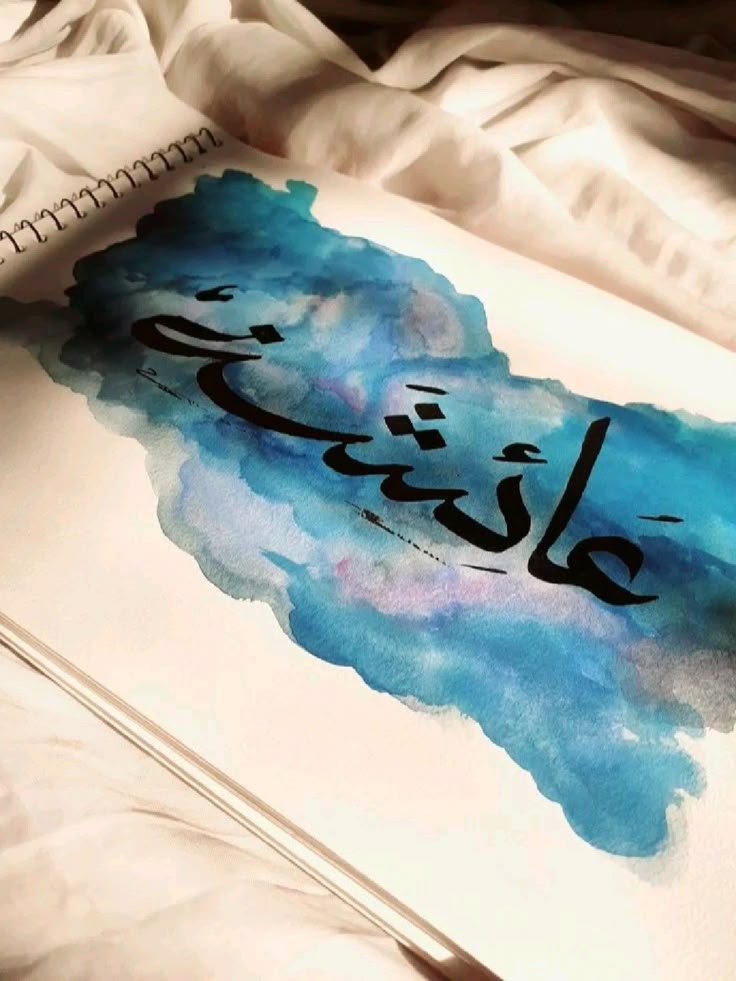 عَائِشَةُ